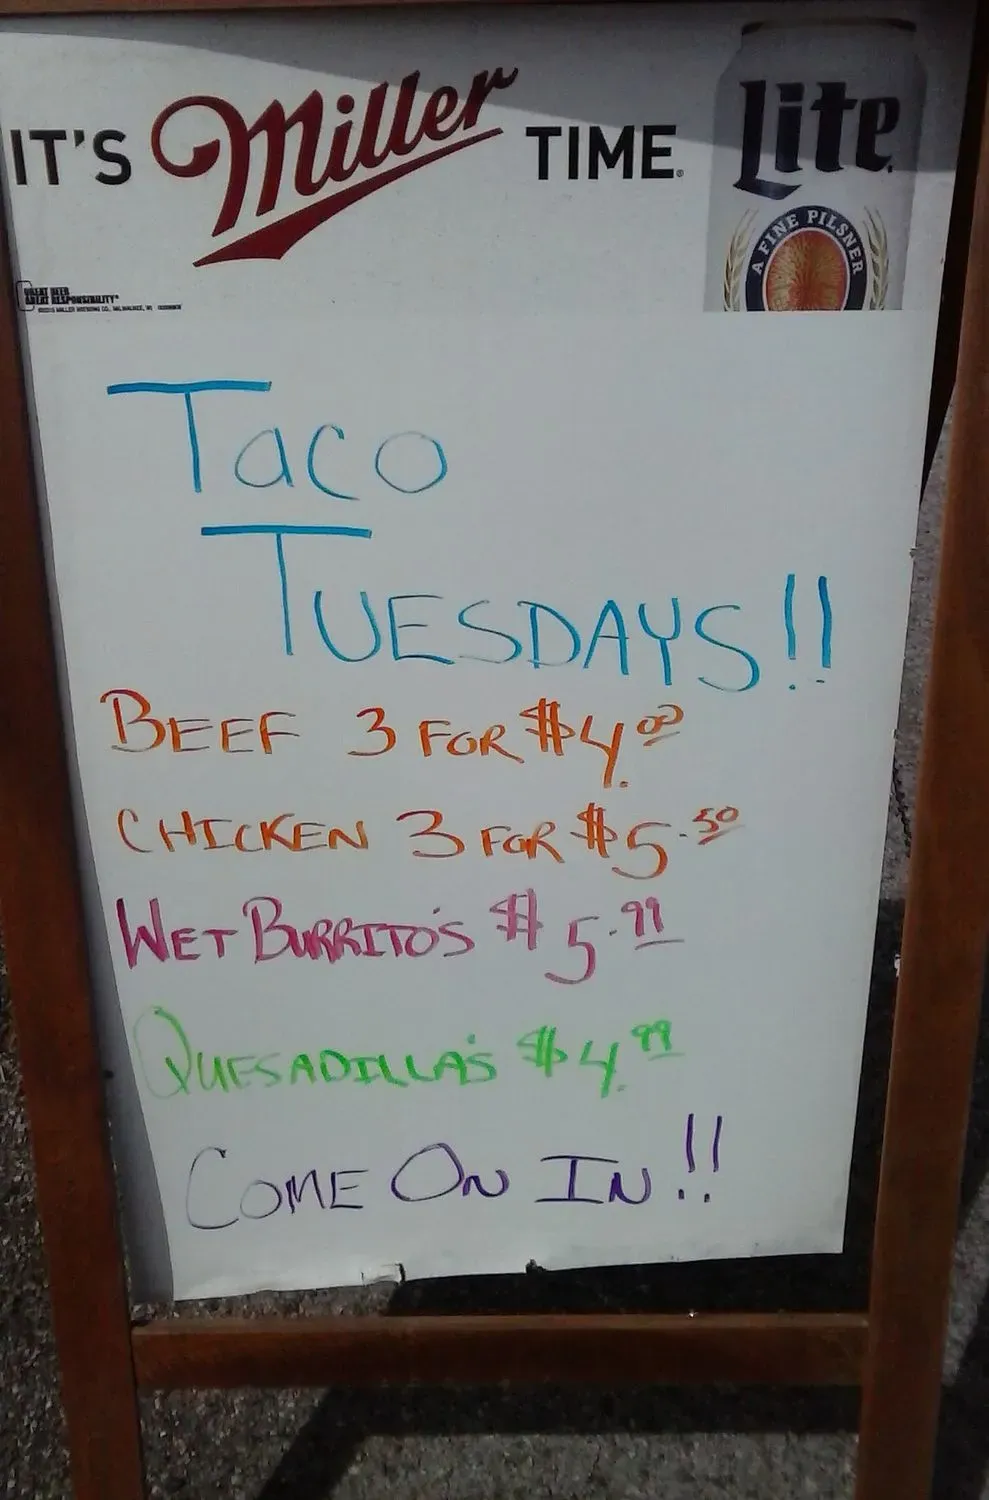 IT'S Miller TIME.
Lite
A FINE PILSNER
GREAT BEER
GREAT RESPONSIBILITY
Taco
TUESDAYS!!
BEEF 3 FOR $4.00
CHICKEN 3 FOR $5.50
WET BURRITO'S $5.99
QUESADILLA'S $4.99
COME ON IN!!